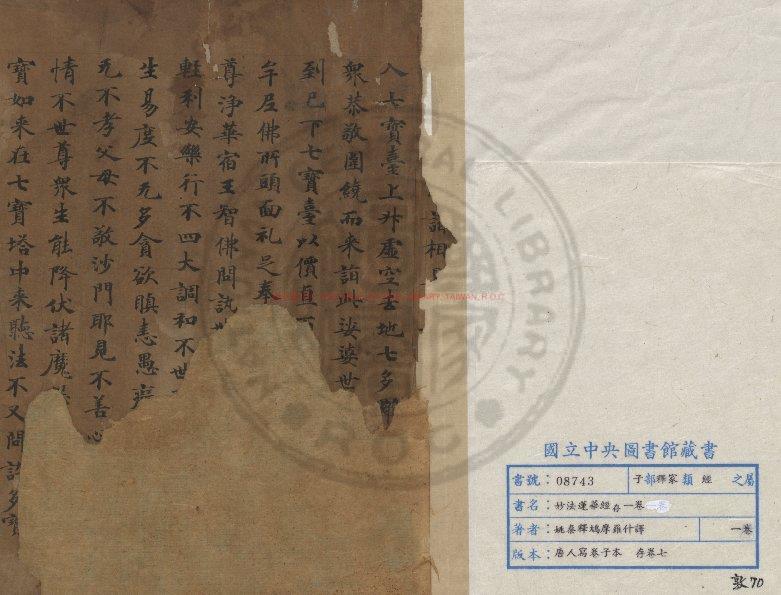 諸相
入七寶臺上升虛空去地七多
衆恭敬圍繞而来詣此娑婆世
到已下七寶臺以價直百
牟尼佛所頭面礼足奉
尊淨華宿王智佛問訊世
輕利安樂行不四大調和不世
生易度不无多貪欲瞋恚愚癡
无不孝父母不敬沙門耶見不善心
情不世尊衆生能降伏諸魔
寶如来在七寶塔中来聽法不又問訊多寶
國立中央圖書館藏書
書號：08743 子部釋家類 經 之屬
書名：妙法蓮華經存一卷
著者：姚秦釋鳩摩羅什譯 一卷
版本：唐人寫卷子本 存卷七
敦70
LIBRARY, TAIWAN, R.O.C